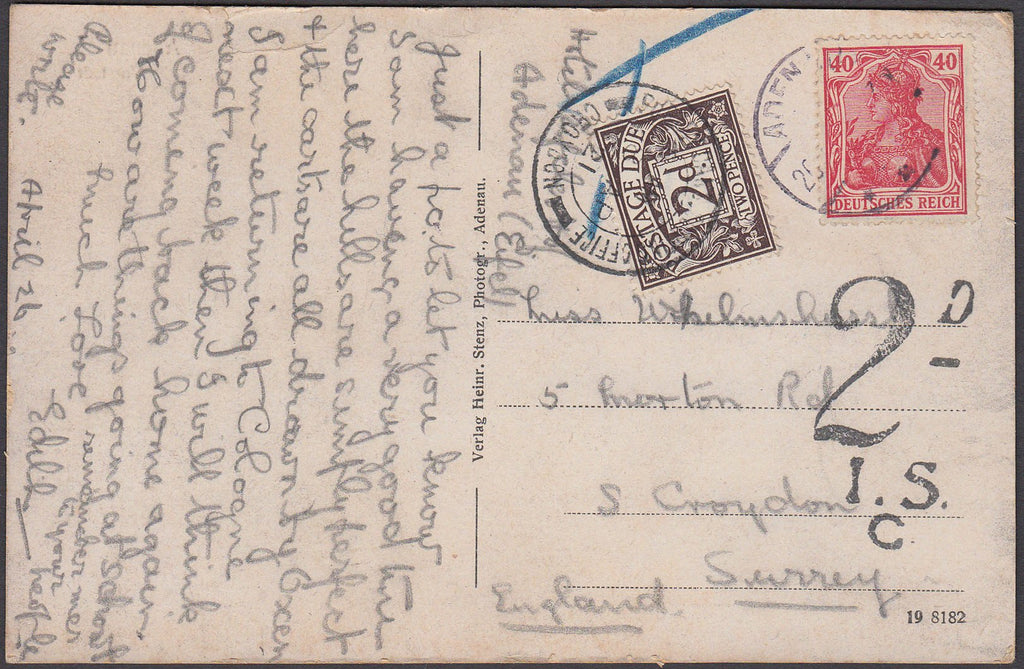 Just a post let you know
I am having a very good time
here the hills are simply perfect
& the carts are all drawn by Oxen
I am returning to Cologne
next week then I will think
of coming back home again.
How are things going at school
much Love remember me
Edith
April 26
Please
write.
Adenau (Eifel)
Verlag Heinr. Stenz, Photogr., Adenau.
NORWOOD
CROYDON
POSTAGE DUE
2d.
TWO PENCE
ADEN
40 40
DEUTSCHES REICH
2D
I.S.
C
Miss
5 Moxton Rd
S Croydon
Surrey
England.
19 8182